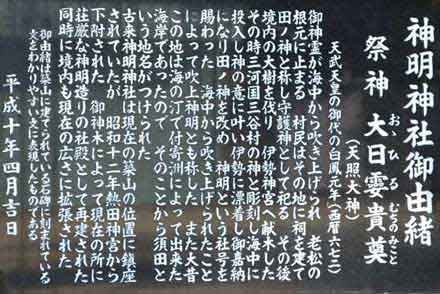 神明神社御由緒
祭神 大日孁貴奠
おゝひるむちのみこと
(天照大神)
天武天皇の御代の白鳳元年(西暦六七二)
御神霊が海中から吹き上げられ 老松の
根元に止まる 村民はその地に祠を建て
田ノ神と称し守護神として祀る その後
境内の大樹を伐り 伊勢神宮へ献木した
その時三河国三谷村の神と彫刻し海中に
投入し神の意に叶い伊勢に漂着し御嘉納
になり田ノ神を改め 神明という社号を
賜わった 海中から吹き上げられたこと
によって吹上神明とも称した また大昔
この地は海の汀で付寄洲によって出来た
海岸であったので そのことから須田と
いう地名がつけられた
古来神明神社は現在の築山の位置に鎮座
されていたが 昭和十二年熱田神宮から
下附された 御神木によって現在の所に
荘厳な神明造りの社殿として再建された
同時に境内も現在の広さに拡張された
御由緒は築山に建てられている石碑に刻まれている
文をわかりやすい文に表現しいものである
平成十年四月吉日